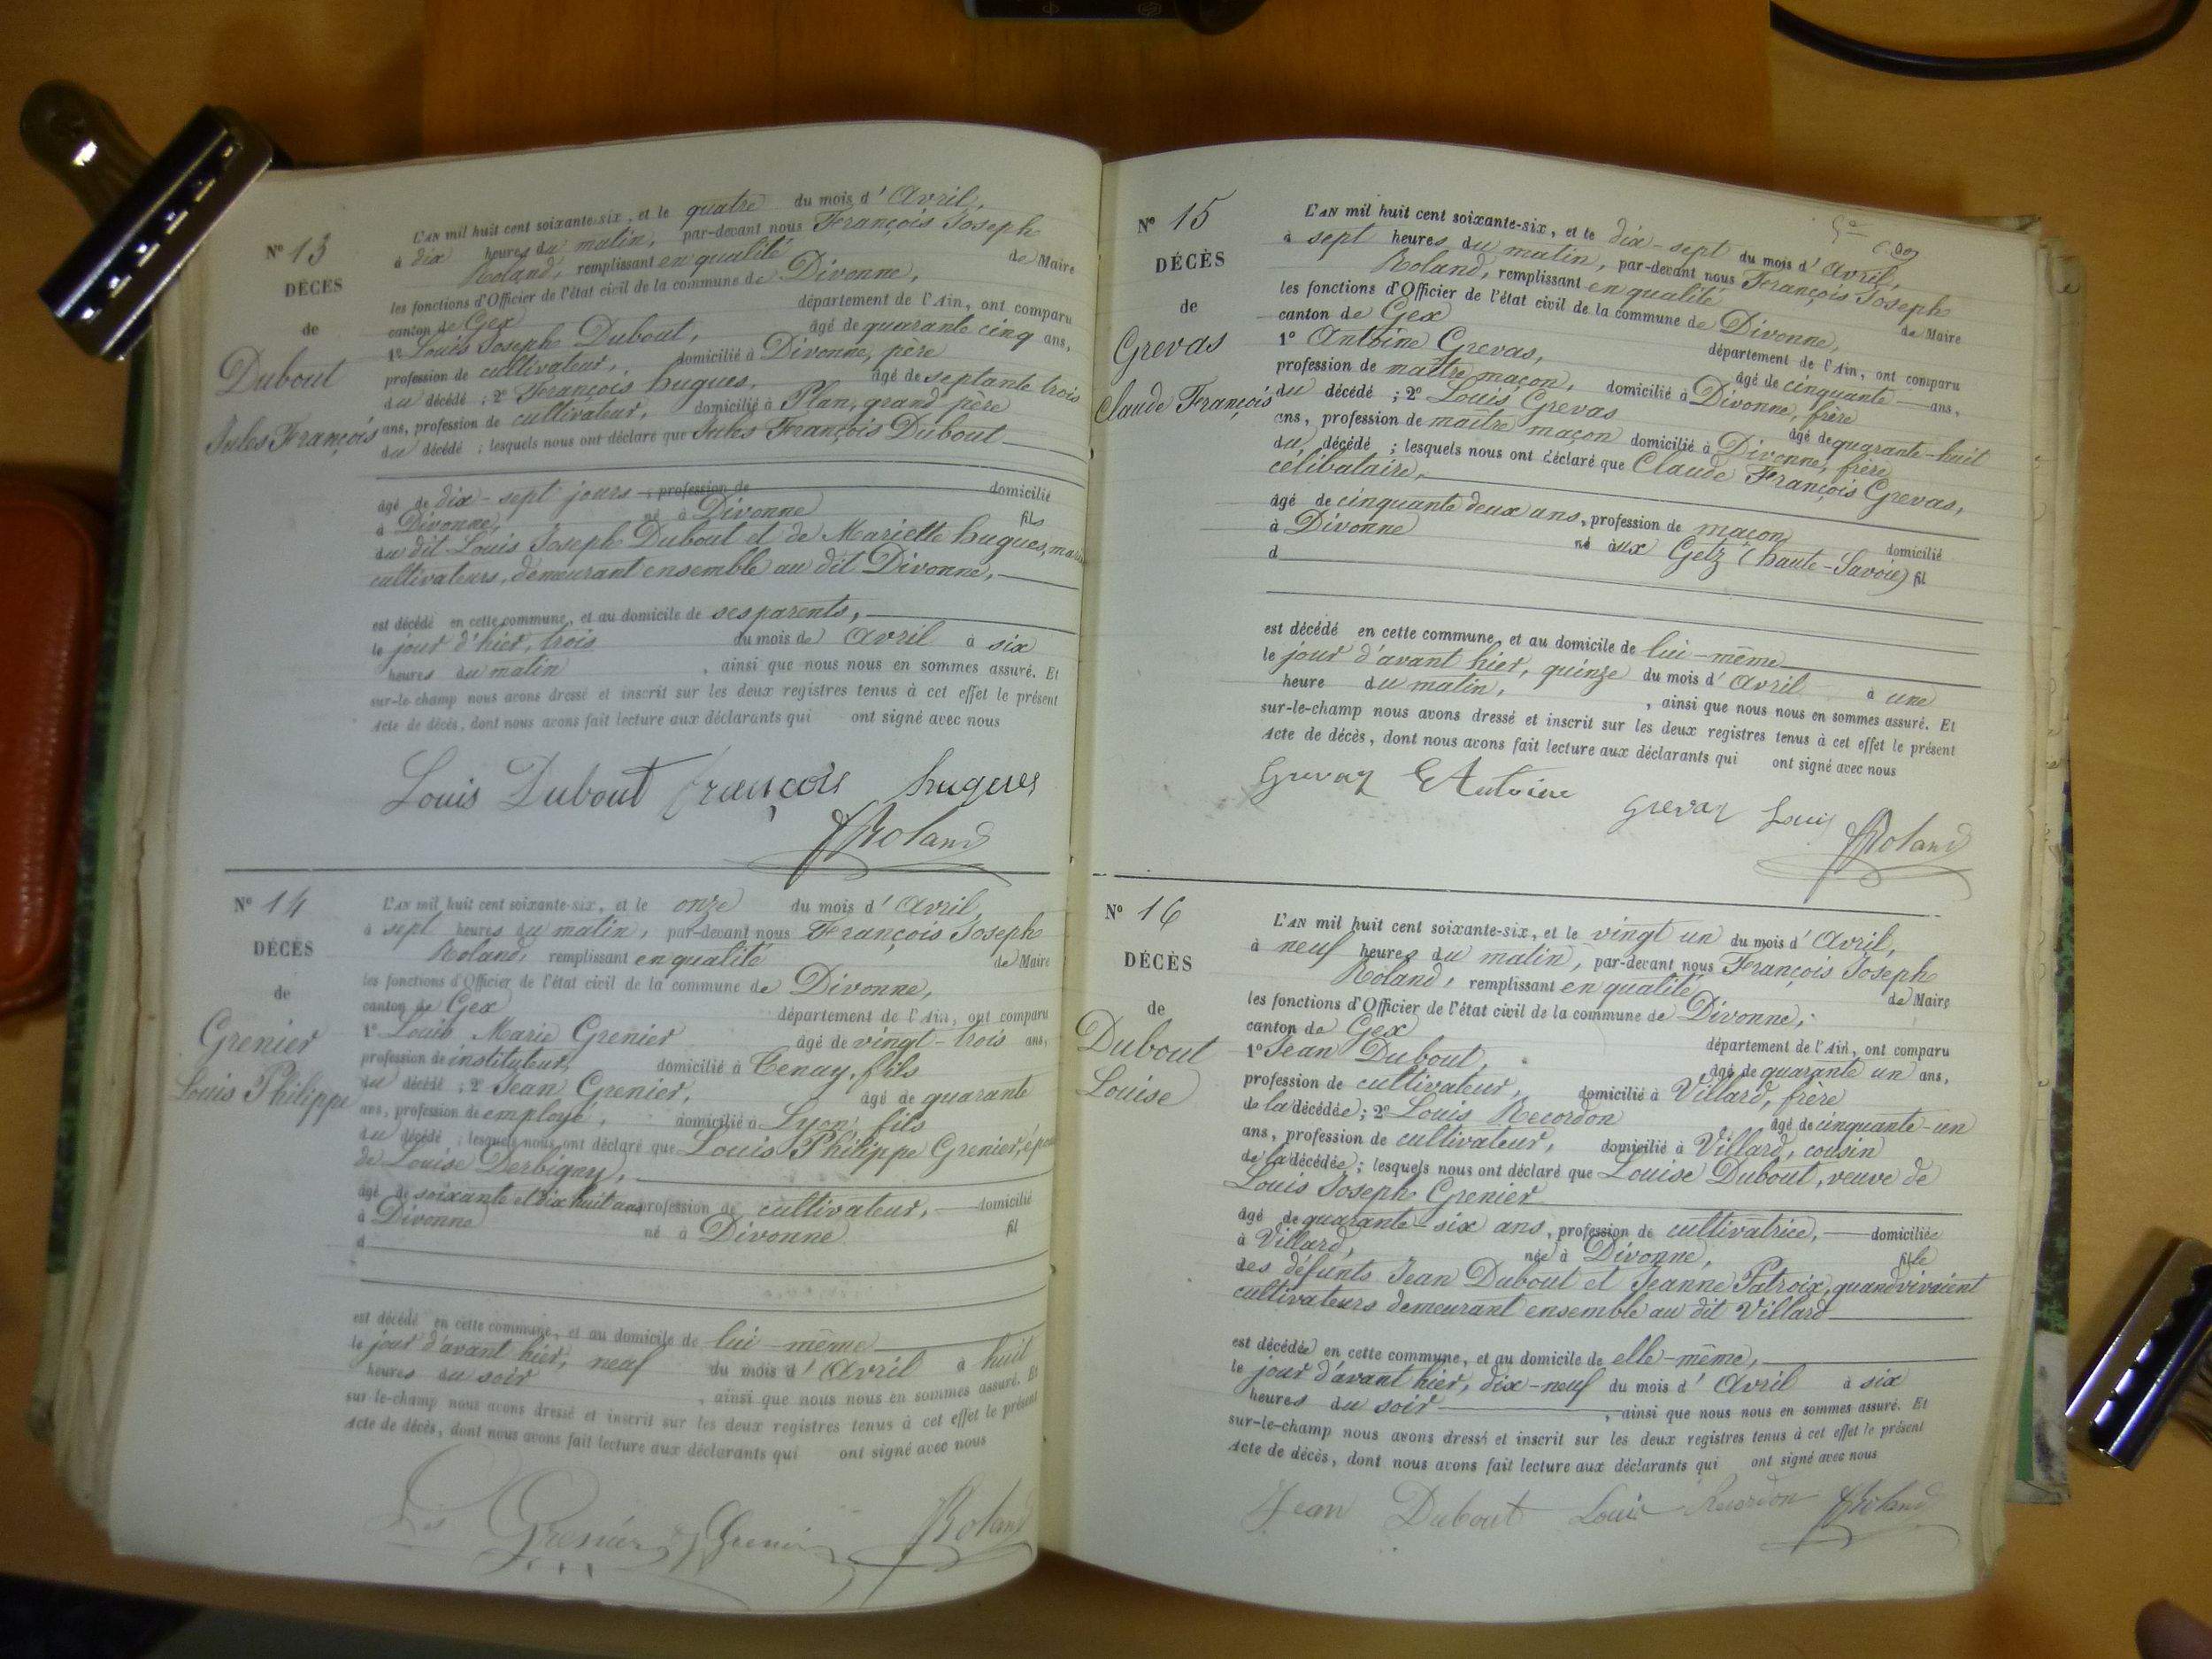 N° 13
DÉCÈS
de
Dubout
Jules François
L'AN mil huit cent soixante-six, et le quatre du mois d'Avril,
à dix heures du matin, par-devant nous François Joseph
Roland, remplissant en qualité de Maire
les fonctions d'Officier de l'état civil de la commune de Divonne,
canton de Gex département de l'Ain, ont comparu
1° Louis Joseph Dubout, âgé de quarante cinq ans,
profession de cultivateur, domicilié à Divonne, père
du décédé ; 2° François hugues, âgé de septante trois
ans, profession de cultivateur, domicilié à Plan, grand père
du décédé ; lesquels nous ont déclaré que Jules François Dubout
âgé de dix-sept jours ; profession de domicilié
à Divonne, né à Divonne fils
du dit Louis Joseph Dubout et de Mariette hugues,
cultivateurs, demeurant ensemble au dit Divonne,
est décédé en cette commune, et au domicile de ses parents,
le jour d'hier, trois du mois de Avril à six
heures du matin , ainsi que nous nous en sommes assuré. Et
sur-le-champ nous avons dressé et inscrit sur les deux registres tenus à cet effet le présent
Acte de décès, dont nous avons fait lecture aux déclarants qui ont signé avec nous
Louis Dubout françois hugues
Roland
N° 14
DÉCÈS
de
Grenier
Louis Philippe
L'AN mil huit cent soixante-six, et le onze du mois d'Avril,
à sept heures du matin, par-devant nous François Joseph
Roland, remplissant en qualité de Maire
les fonctions d'Officier de l'état civil de la commune de Divonne,
canton de Gex département de l'Ain, ont comparu
1° Louis Marie Grenier âgé de vingt-trois ans,
profession de instituteur, domicilié à Tenay, fils
du décédé ; 2° Jean Grenier, âgé de quarante
ans, profession de employé, domicilié à Lyon, fils
du décédé ; lesquels nous ont déclaré que Louis Philippe Grenier,
de Louise Derbigny,
âgé de soixante et dix huit ans profession de cultivateur, domicilié
à Divonne né à Divonne fil
d
est décédé en cette commune, et au domicile de lui-même
le jour d'avant hier, neuf du mois d'Avril à huit
heures du soir , ainsi que nous nous en sommes assuré. Et
sur-le-champ nous avons dressé et inscrit sur les deux registres tenus à cet effet le présent
Acte de décès, dont nous avons fait lecture aux déclarants qui ont signé avec nous
Grenier Grenier Roland
N° 15
DÉCÈS
de
Grevas
Claude François
L'AN mil huit cent soixante-six, et le dix-sept du mois d'Avril,
à sept heures du matin, par-devant nous François Joseph
Roland, remplissant en qualité de Maire
les fonctions d'Officier de l'état civil de la commune de Divonne,
canton de Gex département de l'Ain, ont comparu
1° Antoine Grevas, âgé de cinquante ans,
profession de maître maçon, domicilié à Divonne, frère
du décédé ; 2° Louis Grevas âgé de quarante-huit
ans, profession de maître maçon domicilié à Divonne, frère
du décédé ; lesquels nous ont déclaré que Claude François Grevas,
célibataire,
âgé de cinquante deux ans, profession de maçon domicilié
à Divonne né aux Getz (haute-Savoie) fil
d
est décédé en cette commune, et au domicile de lui-même
le jour d'avant hier, quinze du mois d'Avril à une
heure du matin, , ainsi que nous nous en sommes assuré. Et
sur-le-champ nous avons dressé et inscrit sur les deux registres tenus à cet effet le présent
Acte de décès, dont nous avons fait lecture aux déclarants qui ont signé avec nous
Grevaz Antoine Grevaz Louis
Roland
N° 16
DÉCÈS
de
Dubout
Louise
L'AN mil huit cent soixante-six, et le vingt un du mois d'Avril,
à neuf heures du matin, par-devant nous François Joseph
Roland, remplissant en qualité de Maire
les fonctions d'Officier de l'état civil de la commune de Divonne,
canton de Gex département de l'Ain, ont comparu
1° Jean Dubout, âgé de quarante un ans,
profession de cultivateur, domicilié à Villard, frère
de la décédée ; 2° Louis Recordon âgé de cinquante-un
ans, profession de cultivateur, domicilié à Villard, cousin
de la décédée ; lesquels nous ont déclaré que Louise Dubout, veuve de
Louis Joseph Grenier
âgé de quarante-six ans, profession de cultivatrice, domiciliée
à Villard, née à Divonne, fille
des défunts Jean Dubout et Jeanne Patroix, quand vivaient
cultivateurs demeurant ensemble au dit Villard
est décédée en cette commune, et au domicile de elle-même,
le jour d'avant hier, dix-neuf du mois d'Avril à six
heures du soir , ainsi que nous nous en sommes assuré. Et
sur-le-champ nous avons dressé et inscrit sur les deux registres tenus à cet effet le présent
Acte de décès, dont nous avons fait lecture aux déclarants qui ont signé avec nous
Jean Dubout Louis Recordon Roland